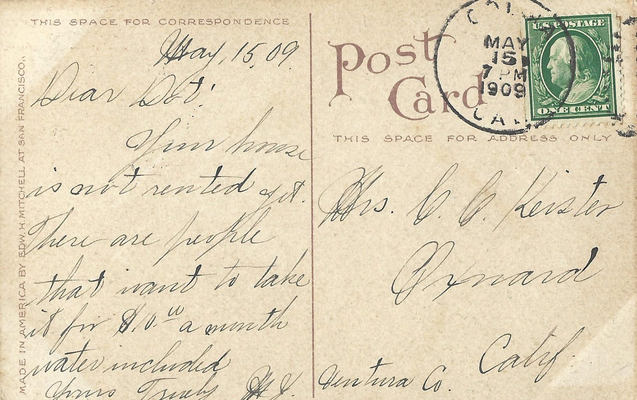 THIS SPACE FOR CORRESPONDENCE
May, 15, 09.
Dear Dot:
Your house
is not rented yet.
There are people
that want to take
it for $
a month
water included
Yours Truly
MADE IN AMERICA BY EDW. H. MITCHELL AT SAN FRANCISCO.
Post
Card
THIS SPACE FOR ADDRESS ONLY
MAY
15
7 PM
1909
CAL
U.S. POSTAGE
ONE CENT
Mrs. C. C. Keister
Oxnard
Calif.
Ventura Co.